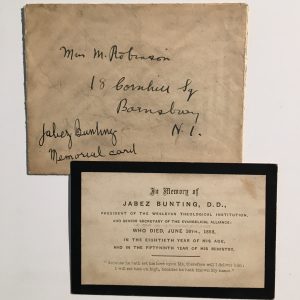 Miss M. Robinson
18 Cornhill Sq
Barnsbury
N. 1.
Jabez Bunting
Memorial card
In Memory of
JABEZ BUNTING, D.D.,
PRESIDENT OF THE WESLEYAN THEOLOGICAL INSTITUTION,
AND SENIOR SECRETARY OF THE EVANGELICAL ALLIANCE:
WHO DIED, JUNE 16TH, 1858,
IN THE EIGHTIETH YEAR OF HIS AGE,
AND IN THE FIFTYNINTH YEAR OF HIS MINISTRY.
"Because he hath set his love upon Me, therefore will I deliver him;
I will set him on high, because he hath known My name."